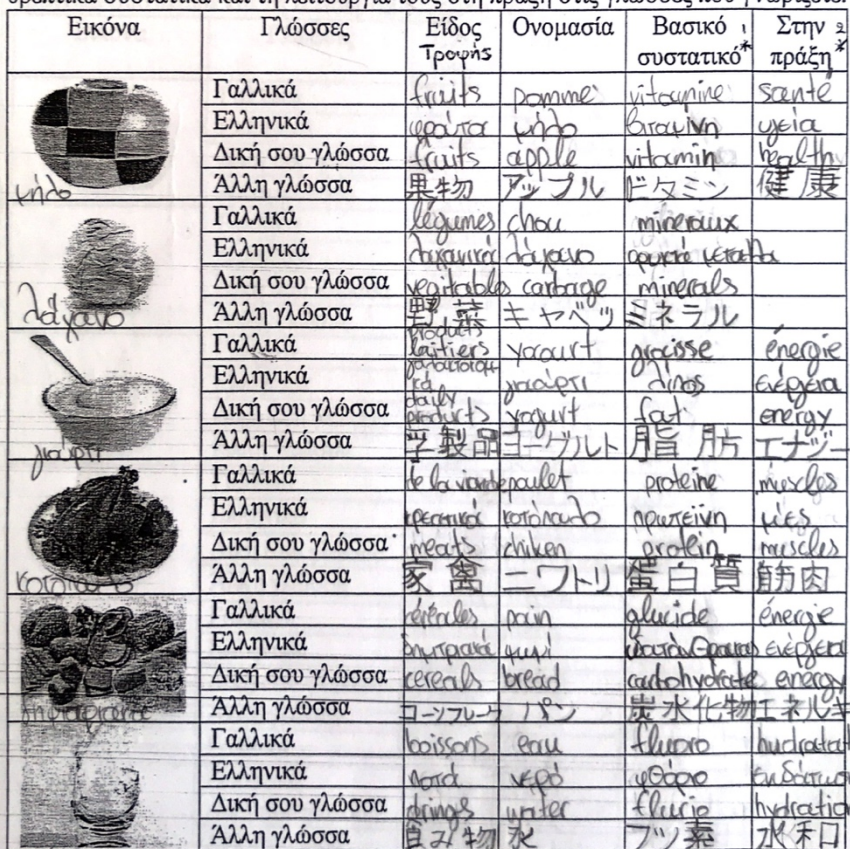 Εικόνα Γλώσσες Είδος Τροφής Ονομασία Βασικό συστατικό*1 Στην πράξη*2
μήλο
Γαλλικά fruits pomme vitamine santé
Ελληνικά φρούτα μήλο βιταμίνη υγεία
Δική σου γλώσσα fruits apple vitamin health
Άλλη γλώσσα 果物 アップル ビタミン 健康
λάχανο
Γαλλικά légumes chou mineraux
Ελληνικά λαχανικά λάχανο ορυκτά μέταλλα
Δική σου γλώσσα vegitables carbage minerals
Άλλη γλώσσα 野菜 キャベツ ミネラル
γιαούρτι
Γαλλικά products laitiers yaourt graisse énergie
Ελληνικά γιαούρτι λίπος ενέργεια
Δική σου γλώσσα daily products yogurt fat energy
Άλλη γλώσσα 製品 ヨーグルト 脂肪 エナジー
κοτόπουλο
Γαλλικά de la viande poulet proteine muscles
Ελληνικά κρεατικά κοτόπουλο πρωτεϊνη μύες
Δική σου γλώσσα meats chiken protein muscles
Άλλη γλώσσα 家禽 ニワトリ 蛋白質 筋肉
Γαλλικά céréales pain glucide énergie
Ελληνικά δημητριακά ψωμί ενέργεια
Δική σου γλώσσα cereals bread carbohydrate energy
Άλλη γλώσσα パン 炭水化物 エネルギ
Γαλλικά boissons eau fluoro hydratat
Ελληνικά ποτά νερό φθόριο ενυδάτωσ
Δική σου γλώσσα drings water flurio hydratio
Άλλη γλώσσα 水 フッ素 水和